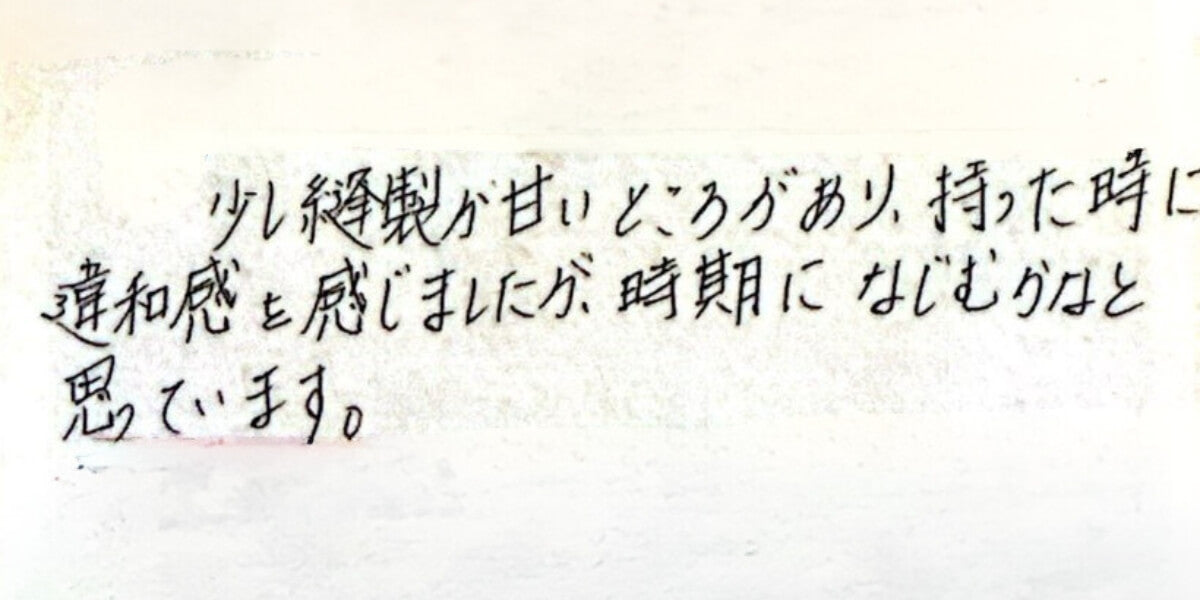 少し縫製が甘いところがあり、持った時に
違和感を感じましたが、時期になじむかなと
思っています。